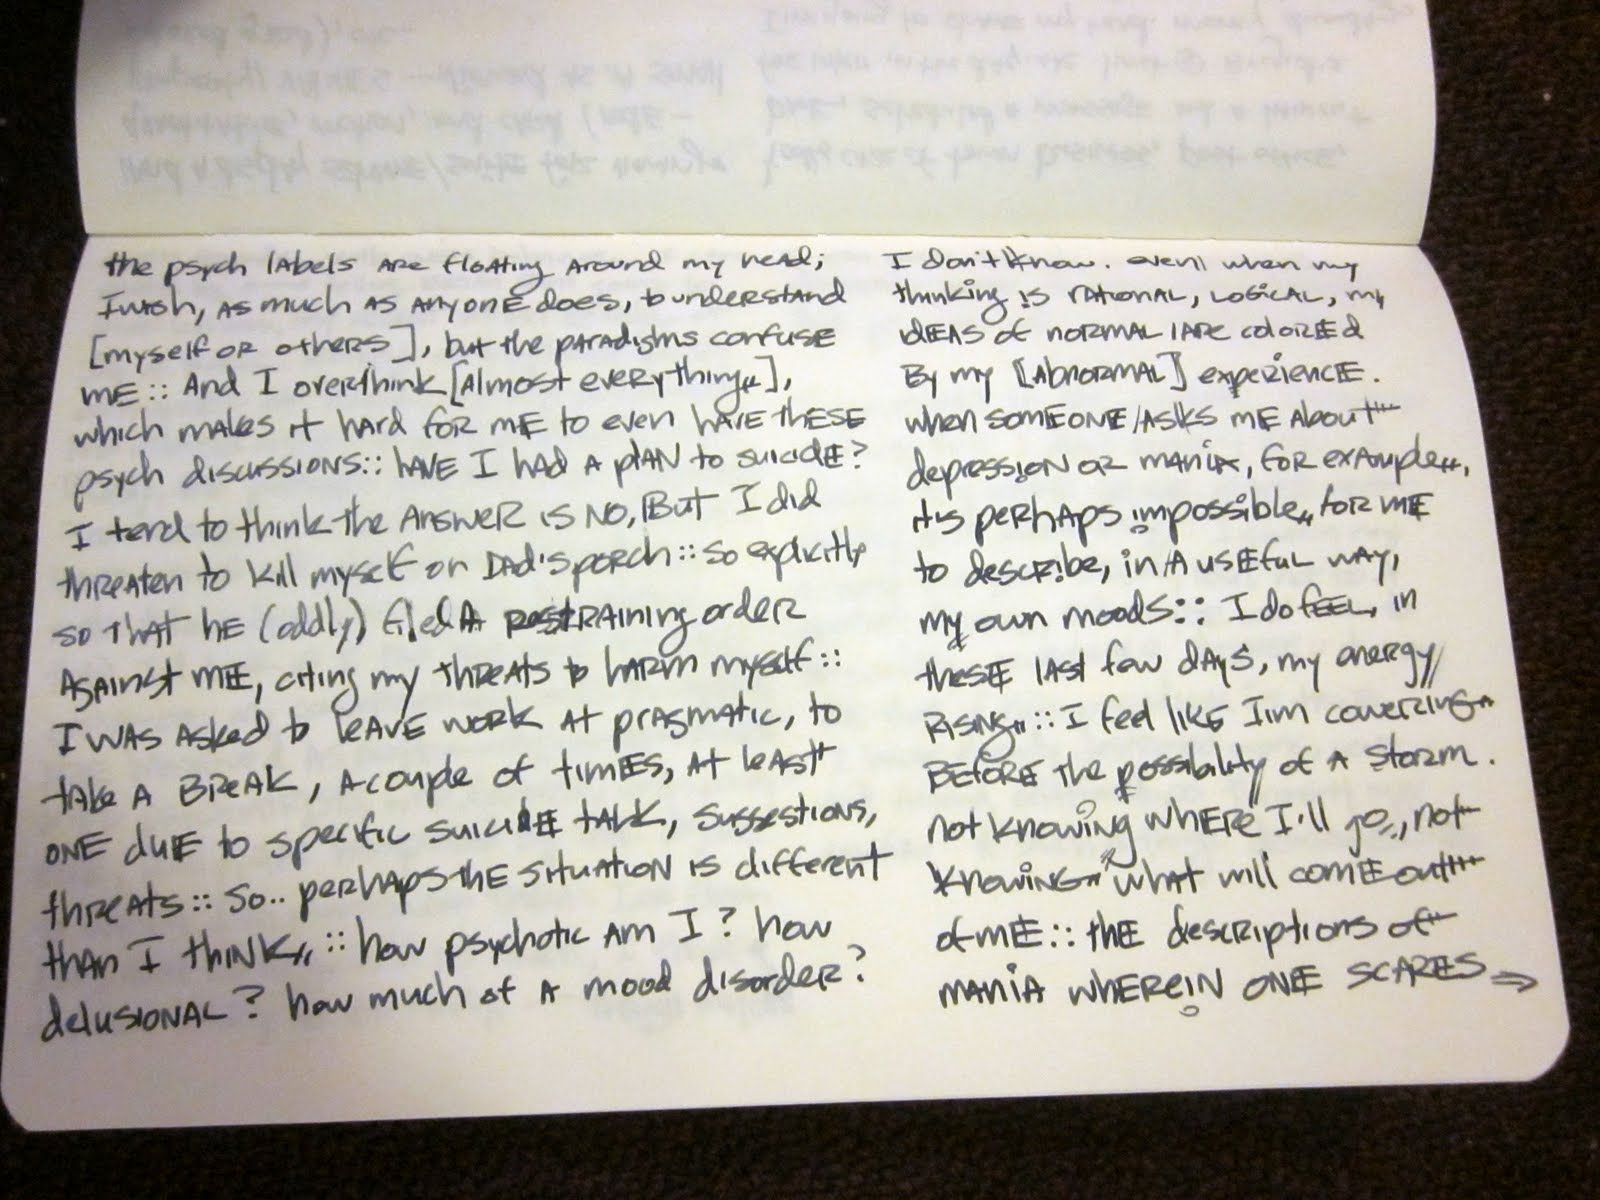 the psych labels are floating around my head;
I wish, as much as anyone does, to understand
[myself or others], but the paradigms confuse
me :: And I overthink [almost everything,,],
which makes it hard for me to even have these
psych discussions :: have I had a plan to suicide?
I tend to think the answer is no, But I did
threaten to kill myself on Dad's porch :: so explicitly
so that he (oddly) filed A restraining order
against me, citing my threats to harm myself ::
I was asked to leave work at pragmatic, to
take a break, a couple of times, at least
one due to specific suicide talk, suggestions,
threats :: so.. perhaps the situation is different
than I think,, :: how psychotic am I? how
delusional? how much of a mood disorder?
I don't know. even when my
thinking is rational, logical, my
ideas of normal are colored
By my [[abnormal]] experience.
when someone asks me about
depression or mania, for example,,,
it is perhaps impossible,, for me
to describe, in a useful way,
my own moods :: I do feel, in
these last few days, my energy
Rising,, :: I feel like I'm cowering
before the possibility of a storm.
not knowing where I'll go,, not
knowing what will come out
of me :: the descriptions of
mania wherein one scares ⇒